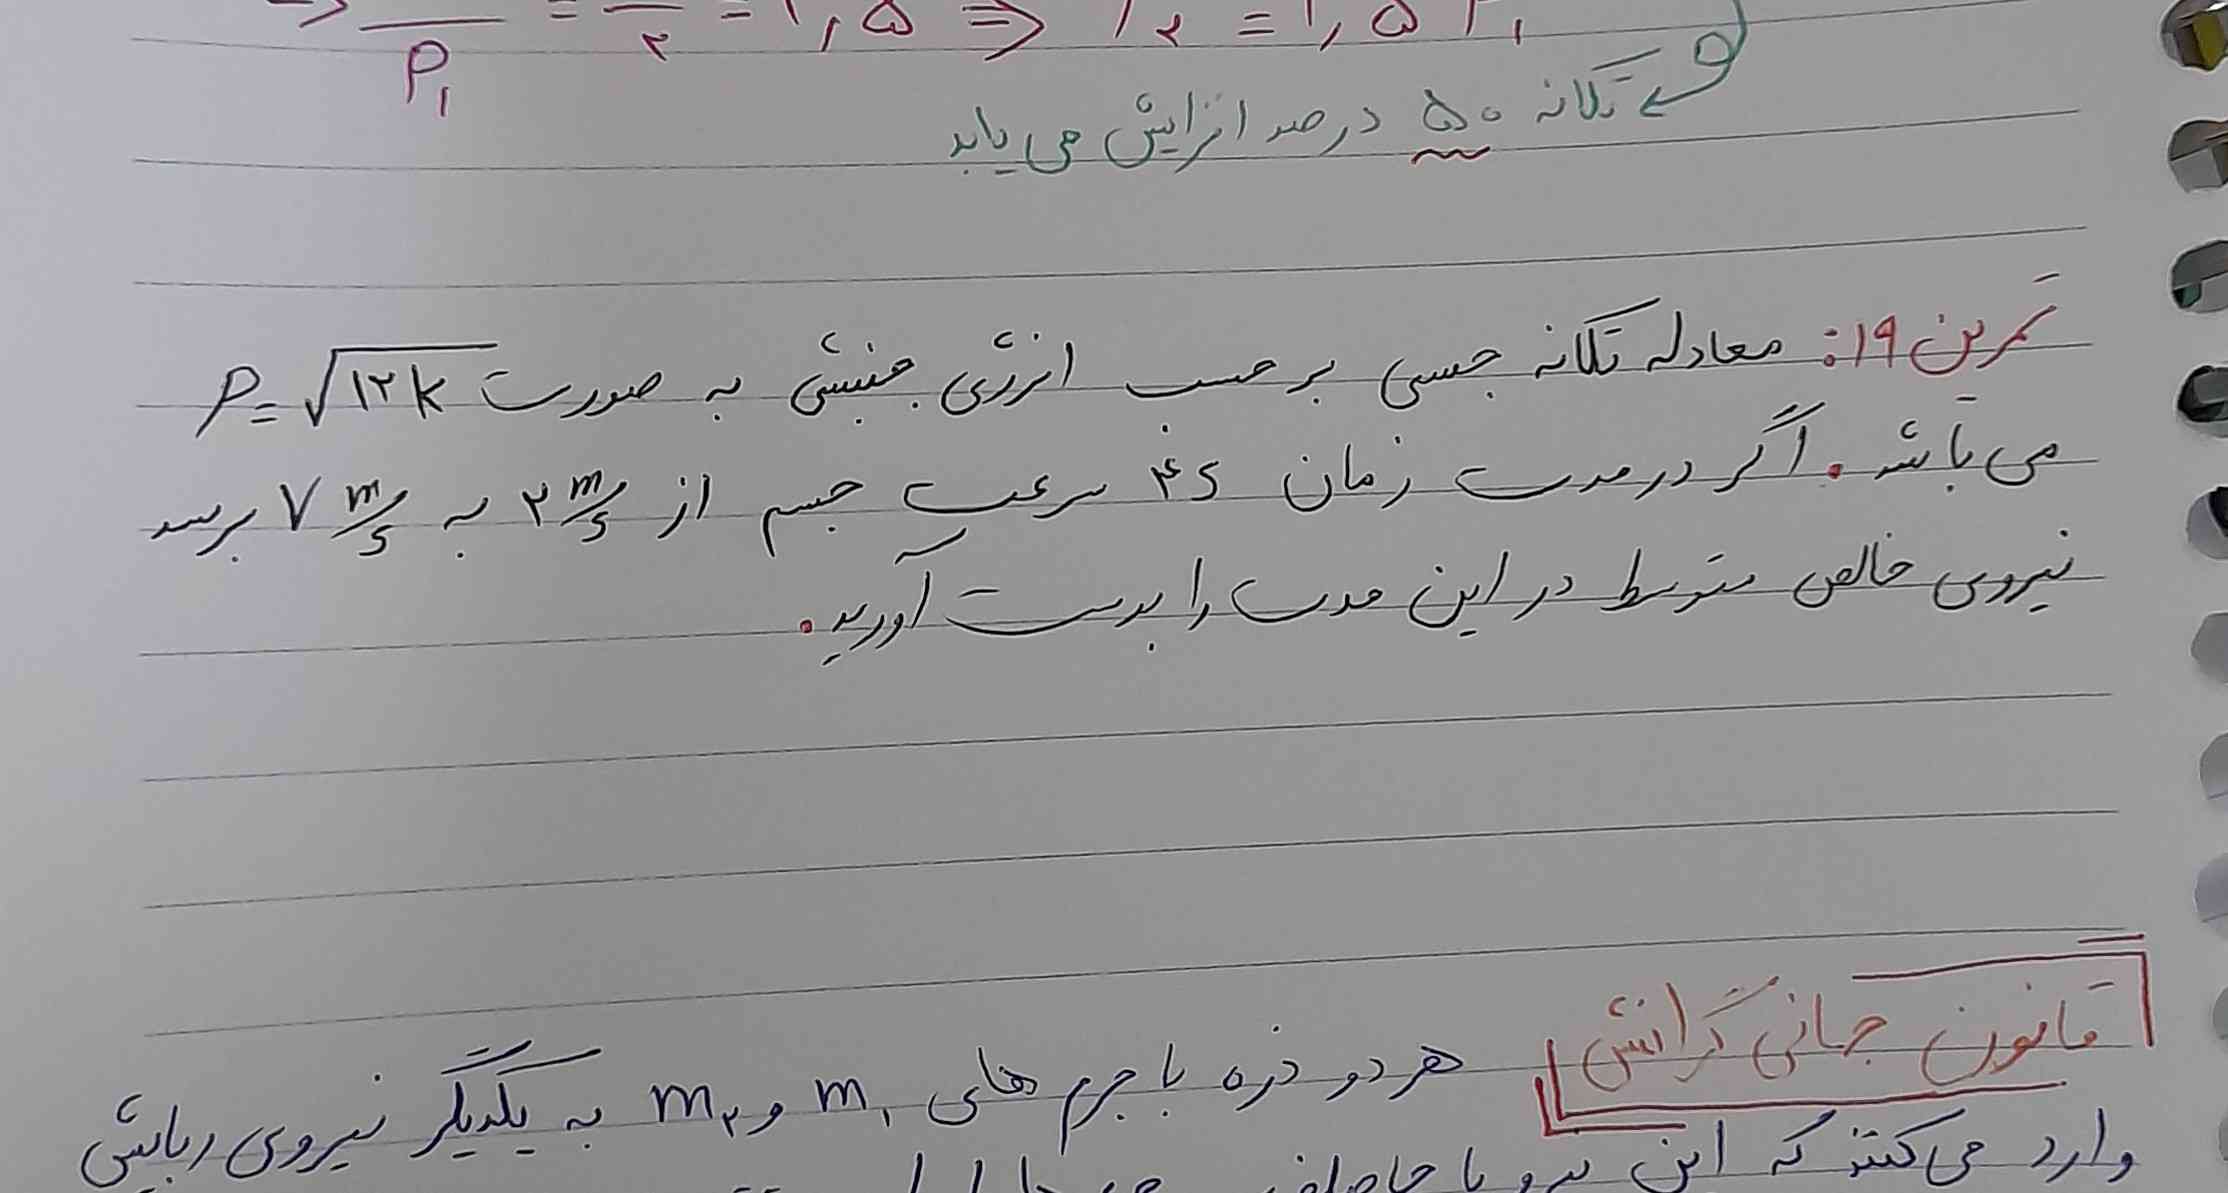 P₁ = ۲ = ۱,۵ ⇒ P₂ = ۱,۵ P₁
تکانه ۵۰ درصد افزایش می یابد
تمرین ۱۹: معادله تکانه جسمی بر حسب انرژی جنبشی به صورت P = √۱۲k
می باشد. اگر در مدت زمان ۴s سرعت جسم از ۲ m/s به ۷ m/s برسد
نیروی خالص متوسط در این مدت را بدست آورید.
قانون جهانی گرانش هر دو ذره با جرم های m₁ و m₂ به یکدیگر نیروی ربایش
وارد می کنند که این